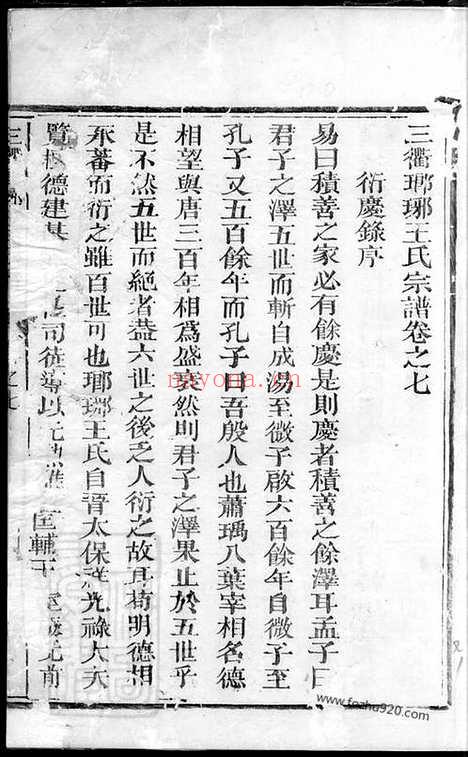 三衢瑯琊王氏宗譜卷之七
衍慶錄序
易曰積善之家必有餘慶是則慶者積善之餘澤耳孟子曰
君子之澤五世而斬自成湯至微子啟六百餘年自微子至
孔子又五百餘年而孔子曰吾殷人也蕭瑀八葉宰相名德
相望與唐三百年相爲盛衰然則君子之澤果止於五世乎
是不然五世而絕者蓋六世之後乏人衍之故耳苟明德相
承蕃而衍之雖百世可也瑯琊王氏自晉太保祥光祿大夫
覽樹德建基司徒導以匡輔王
之七
nayona.cn
www.fozhu920.com